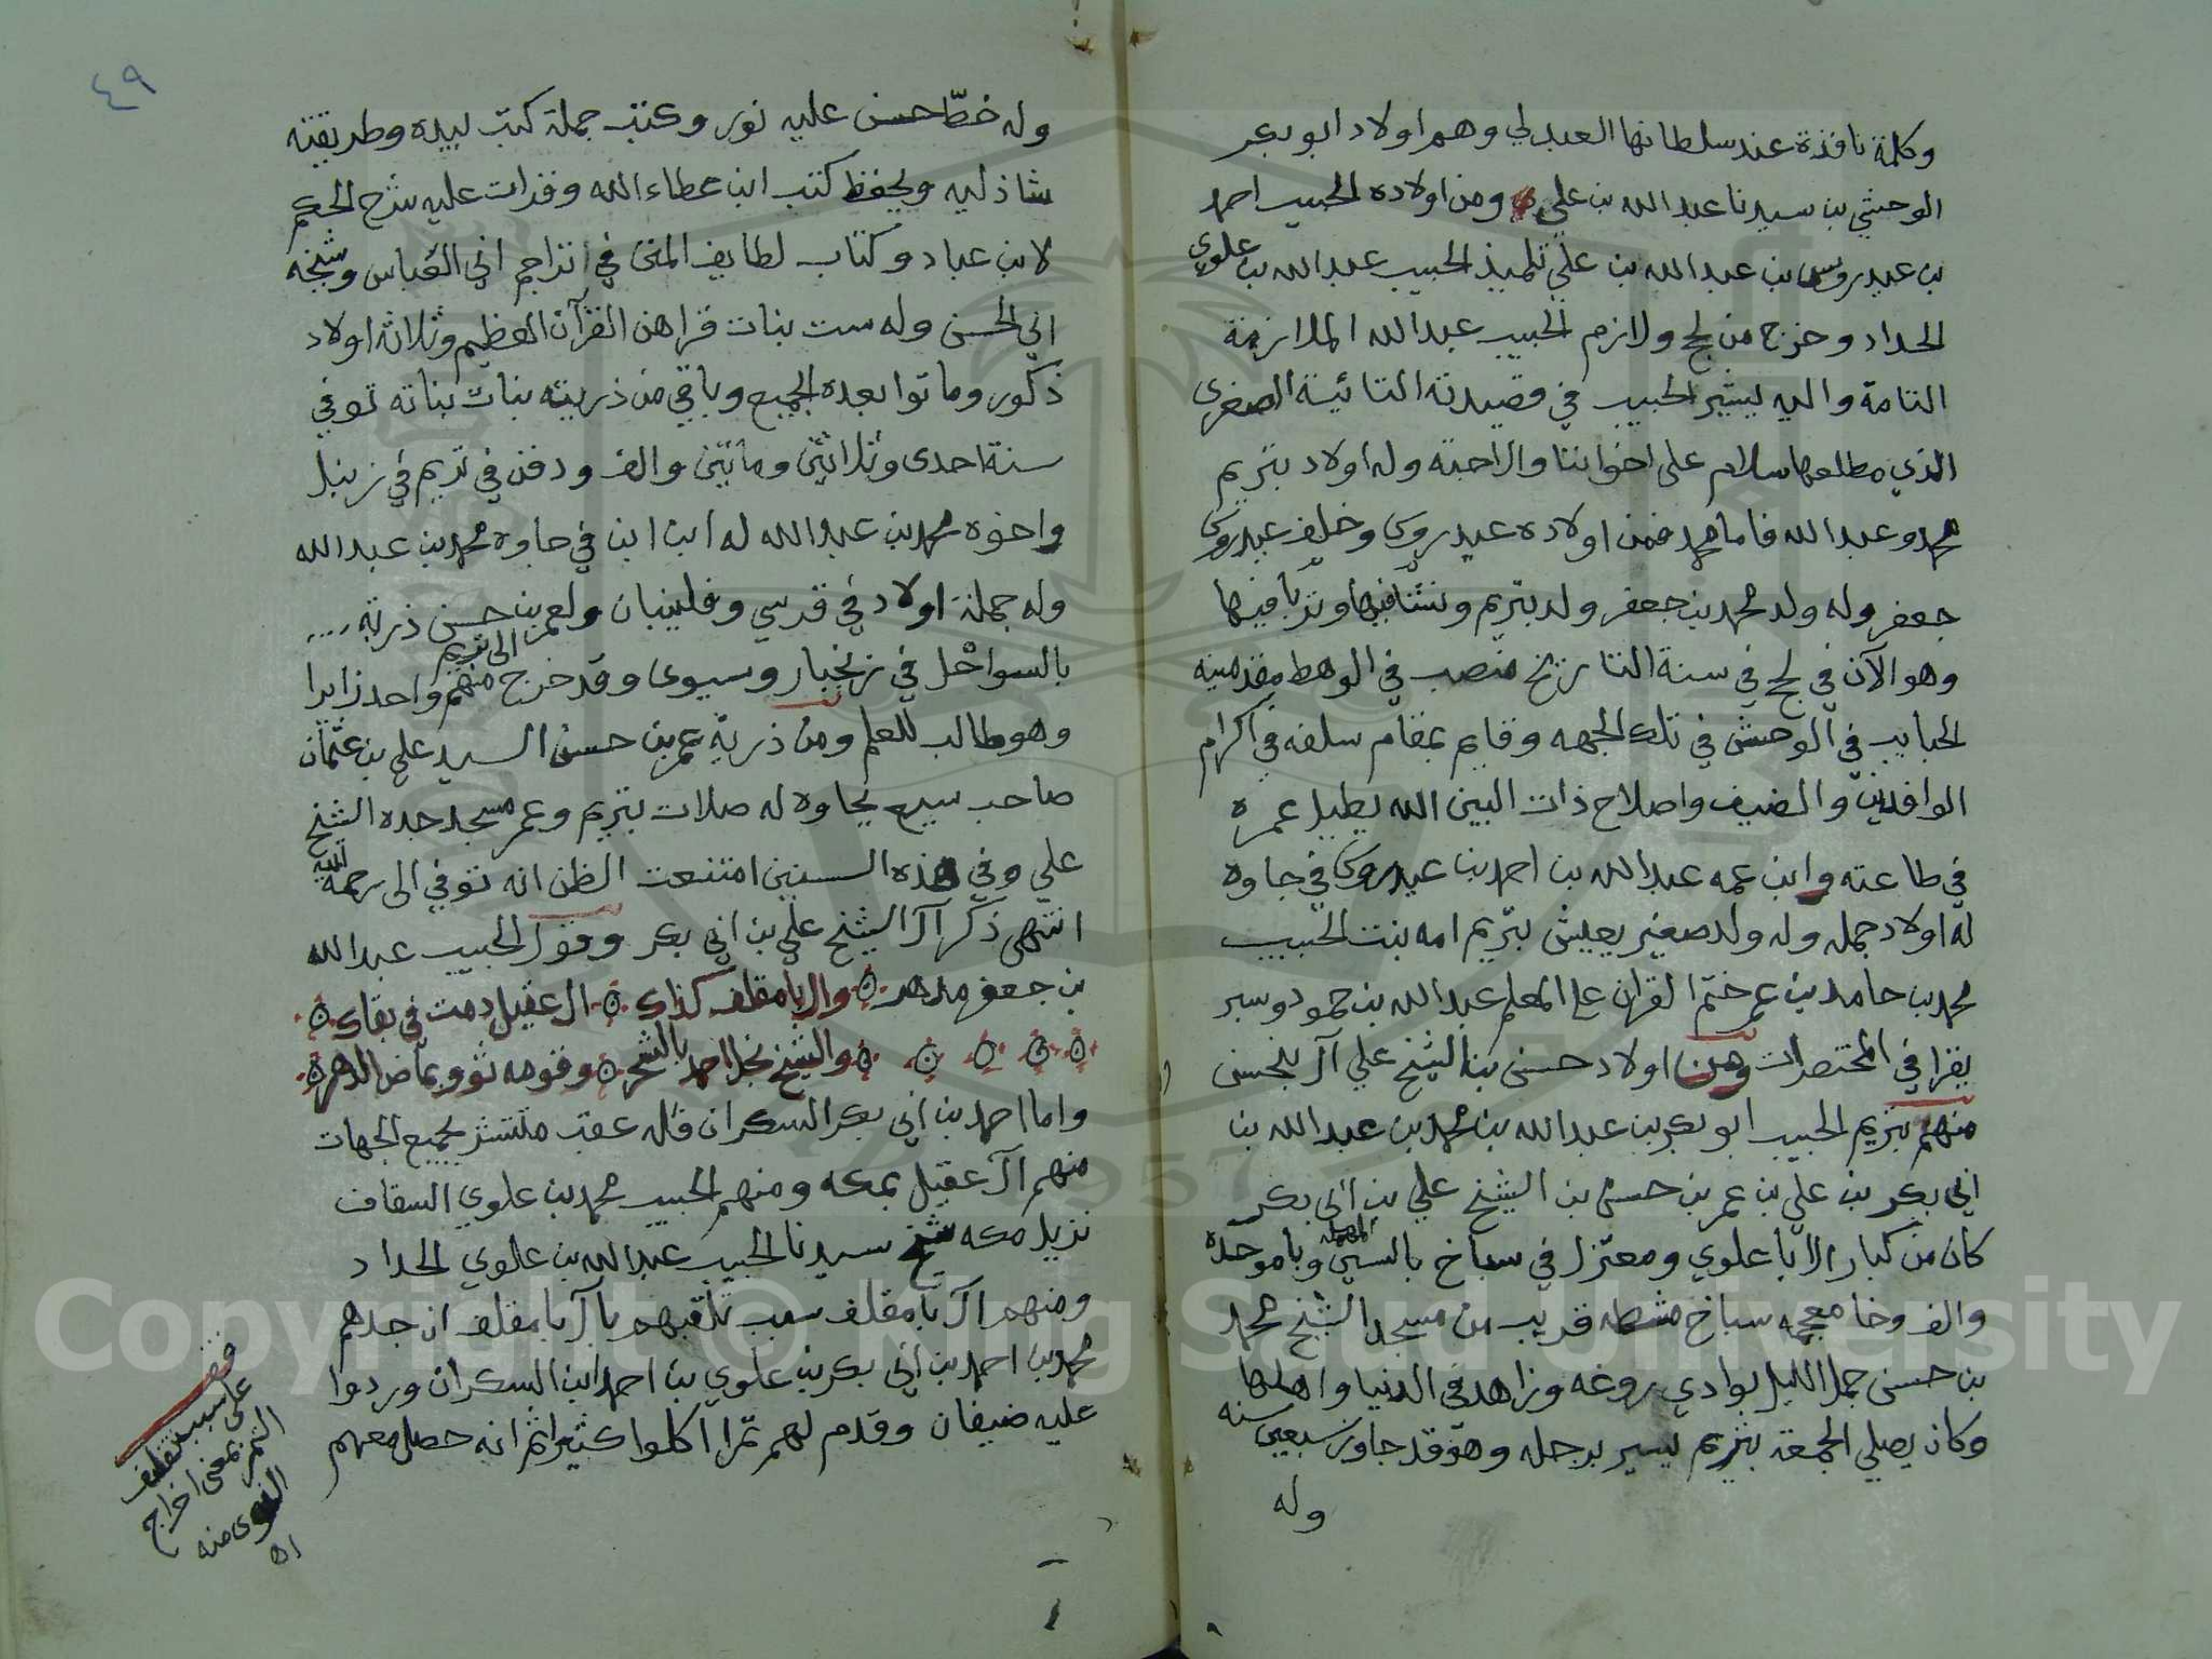 وكلمة نافذة عند سلطانها العبدلي وهم اولاد ابو بكر
الوحشي بن سيدنا عبدالله بن علي ومن اولاده الحبيب احمد
بن عيدروس بن عبدالله بن علي تلميذ الحبيب عبدالله بن علوي
الحداد وخرج من لحج ولازم الحبيب عبدالله الملازمة
التامة واليه يشير الحبيب في قصيدته التائية الصغرى
الذي مطلعها سلام على اخواننا والاحبة وله اولاد بتريم
محمد وعبدالله فاما محمد فمن اولاده عيدروس وخلف عيدروس
جعفر وله ولد محمد بن جعفر ولد بتريم ونشا فيها وتربا فيها
وهو الآن في لحج في سنة التاريخ منصب في الوهط مقدمينه
الحبايب في الوحش في تلك الجهه وقايم بمقام سلفه في اكرام
الوافدين والضيف واصلاح ذات البين الله يطيل عمره
في طاعته وابن عمه عبدالله بن احمد بن عيدروس في جاوه
له اولاد جمله وله ولد صغير يعيش بتريم امه بنت الحبيب
محمد بن حامد بن عمر ختم القران على المعلم عبدالله بن حمود وسبر
يقرا في المختصرات ومن اولاد حسن بن الشيخ علي آل بلحسن
منهم بتريم الحبيب ابو بكر بن عبدالله بن محمد بن عبدالله بن
ابي بكر بن علي بن عمر بن حسن بن الشيخ علي بن ابي بكر
كان من كبار الابا علوي ومعتزل في سباخ بالسين المهمله وبا موحده
والف وخا معجمه سباخ مشطه قريب من مسجد الشيخ محمد
بن حسن جمل الليل بوادي روغه وزاهد في الدنيا واهلها
وكان يصلي الجمعة بتريم يسير برجله وهو قد جاوز سبعين سنه
وله
٤٩
وله خط حسن عليه نور وكتب جملة كتب بيده وطريقته
شاذليه ويحفظ كتب ابن عطاء الله وقرات عليه شرح الحكم
لابن عباد وكتاب لطايف المنن في تراجم ابي العباس وشيخه
ابي الحسن وله ست بنات قراهن القرآن العظيم وثلاثة اولاد
ذكور وماتوا بعده الجميع وباقي من ذريته بنات بناته توفي
سنة احدى وثلاثين ومائتين والف ودفن في تريم في زنبل
واخوه محمد بن عبدالله له ابن ابن في جاوه محمد بن عبدالله
وله جملة اولاد في قرسي وفلينبان ولعمر بن حسن ذريه
بالسواحل في زنجبار وسيوى وقد خرج منهم واحد زايرا الى تريم
وهو طالب للعلم ومن ذرية عمر بن حسن السيد علي بن عثمان
صاحب سيع بجاوه له صلات بتريم وعمر مسجد جده الشيخ
علي وفي هذه السنين امتنعت الظن انه توفي الى رحمة الله
انتهى ذكر آل الشيخ علي بن ابي بكر وقول الحبيب عبدالله
بن جعفر مدهر وال بامقلف كذاك ال عقيل دمت في بقاك
والشيخ نجل احمد بالشحر وقومه ثووا بماض الدهر
واما احمد بن ابي بكر السكران فله عقب منتشر بجميع الجهات
منهم آل عقيل بمكه ومنهم الحبيب محمد بن علوي السقاف
نزيل مكه شيخ سيدنا الحبيب عبدالله بن علوي الحداد
ومنهم آل بامقلف سبب تلقبهم بآل بامقلف ان جدهم
محمد بن احمد بن ابي بكر بن علوي بن احمد ابن السكران وردوا
عليه ضيفان وقدم لهم تمرا اكلوا كثيرا ثم انه حصل معهم
قف
على سبب تقلف
التمر بمعنى اخراج
النوى منه
اه
Copyright © King Saud University
1957